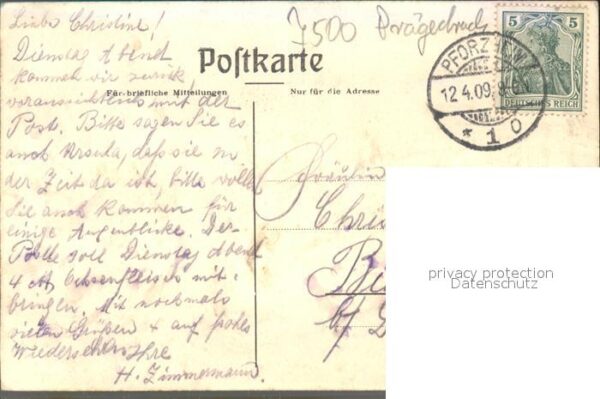 Liebe Christine!
Dienstag Abend
kommen wir zurück
voraussichtlich mit der
Post. Bitte sagen Sie es
auch Ursula, daß sie zu
der Zeit da ist, bitte wolle
Sie auch kommen für
einige Augenblicke. Der
soll Dienstag Abend
4 Ochsenfleisch mit-
bringen. Mit nochmals
vielen Grüßen + auf frohes
Wiedersehen Ihre
H. Zimmermann.
7500 Prägedruck
Postkarte
Für briefliche Mitteilungen
Nur für die Adresse
PFORZHEIM
12.4.09.
* 1 o
5 5
DEUTSCHES REICH
Fräulein
Chri
privacy protection
Datenschutz